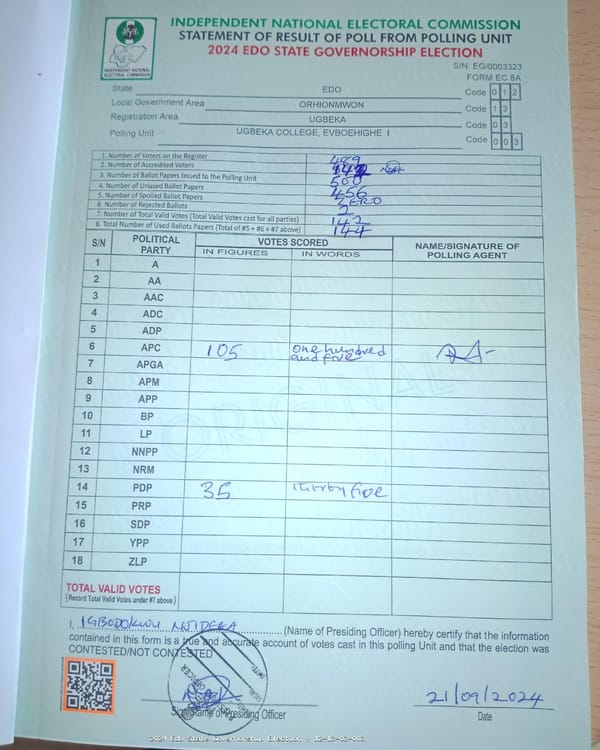 INDEPENDENT NATIONAL ELECTORAL COMMISSION
STATEMENT OF RESULT OF POLL FROM POLLING UNIT
2024 EDO STATE GOVERNORSHIP ELECTION
INEC
INDEPENDENT NATIONAL
ELECTORAL COMMISSION
S/N. EG/0003323
FORM EC 8A
State EDO Code 0 1 2
Local Government Area ORHIONMWON Code 1 3
Registration Area UGBEKA Code 0 3
Polling Unit UGBEKA COLLEGE, EVBOEHIGHE I Code 0 0 3
1. Number of Voters on the Register 489
2. Number of Accredited Voters
3. Number of Ballot Papers Issued to the Polling Unit 500
4. Number of Unused Ballot Papers 456
5. Number of Spoiled Ballot Papers ZERO
6. Number of Rejected Ballots 2
7. Number of Total Valid Votes (Total Valid Votes cast for all parties) 142
8. Total Number of Used Ballots Papers (Total of #5 + #6 + #7 above) 144
S/N POLITICAL PARTY VOTES SCORED NAME/SIGNATURE OF POLLING AGENT
IN FIGURES IN WORDS
1 A
2 AA
3 AAC
4 ADC
5 ADP
6 APC 105 one hundred and five
7 APGA
8 APM
9 APP
10 BP
11 LP
12 NNPP
13 NRM
14 PDP 35 thirty five
15 PRP
16 SDP
17 YPP
18 ZLP
ORIGINAL
TOTAL VALID VOTES
(Record Total Valid Votes under #7 above)
I, (Name of Presiding Officer) hereby certify that the information
contained in this form is a true and accurate account of votes cast in this polling Unit and that the election was
CONTESTED/NOT CONTESTED
21/09/2024
Sign/Name of Presiding Officer Date
2024 Edo State Governorship Election : 12-13-03-003